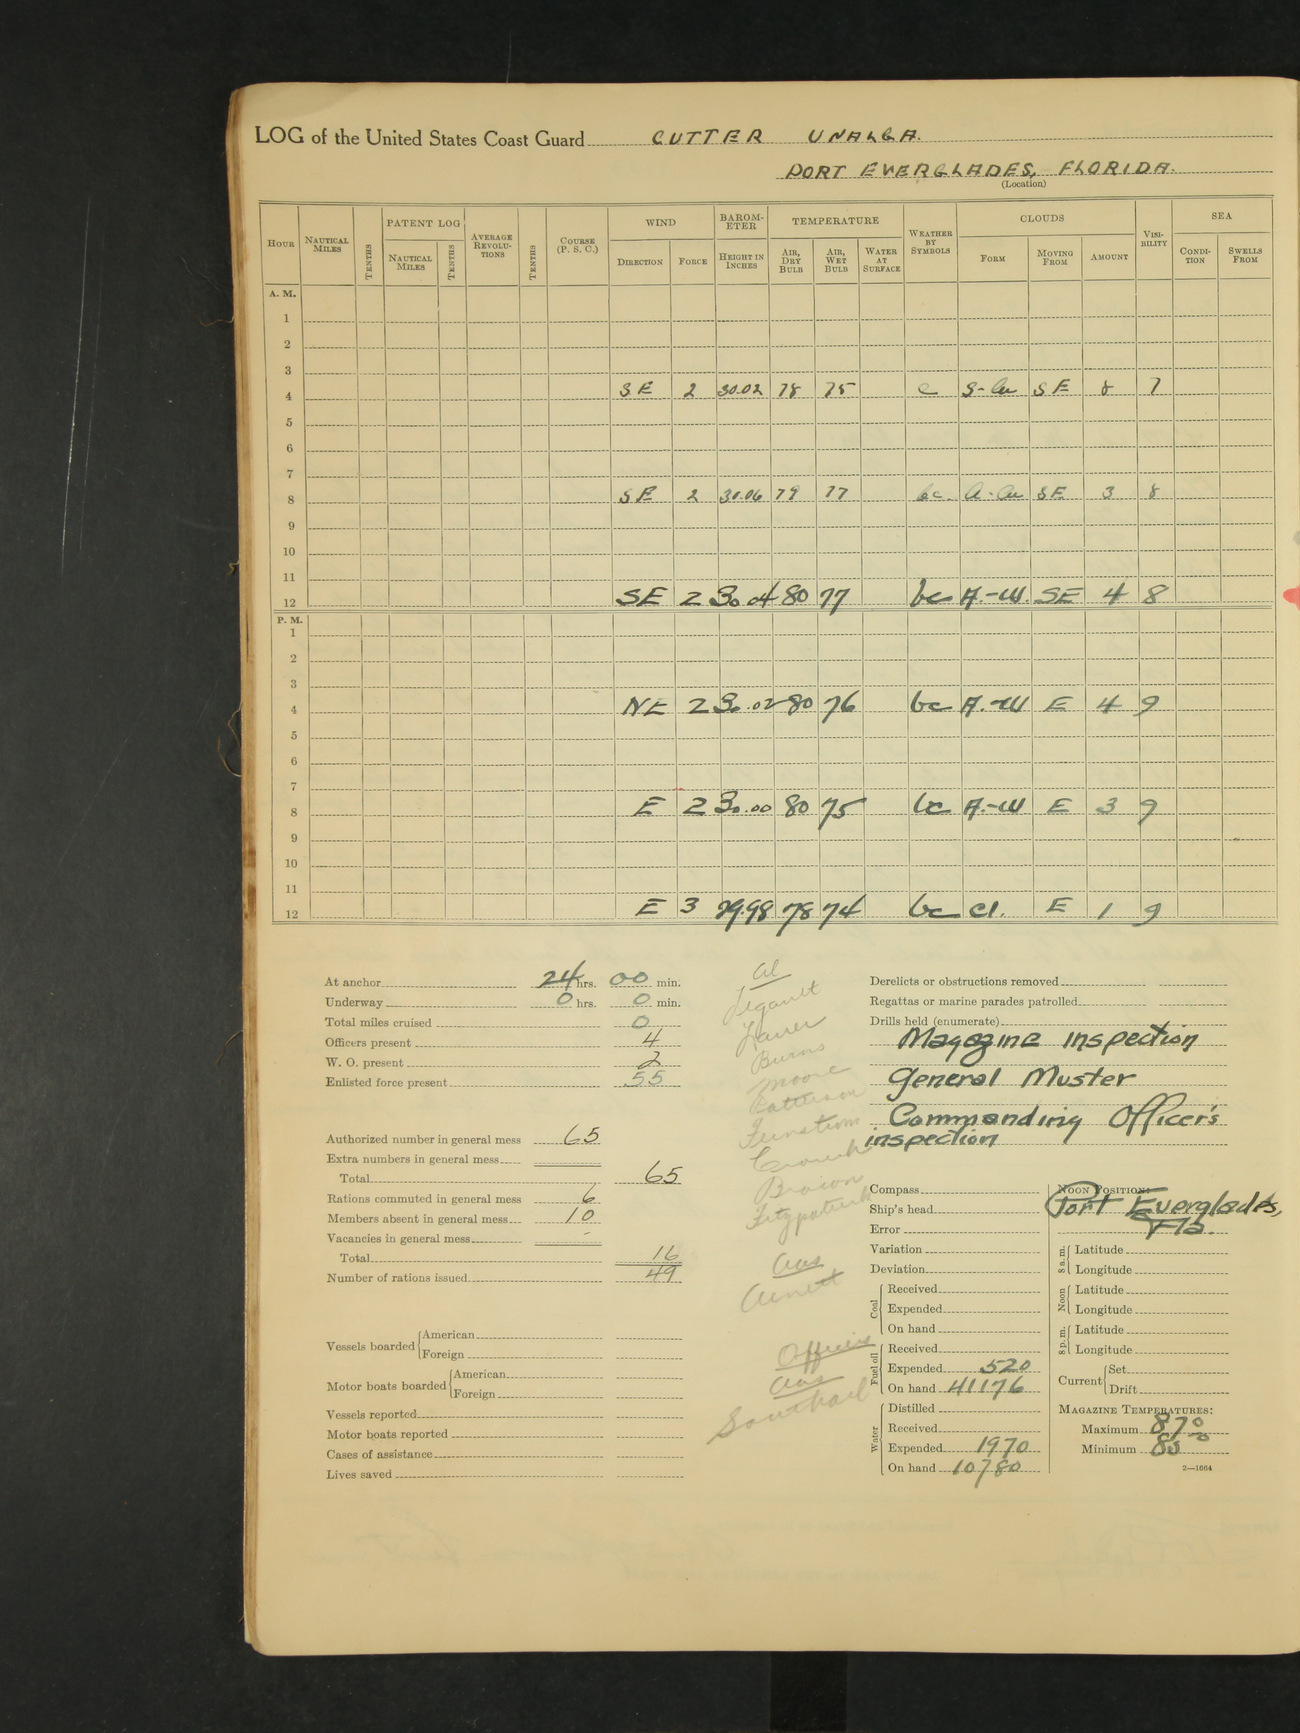 LOG of the United States Coast Guard CUTTER UNALGA.
PORT EVERGLADES, FLORIDA.
(Location)
HOUR NAUTICAL MILES TENTHS PATENT LOG NAUTICAL MILES TENTHS AVERAGE REVOLUTIONS TENTHS COURSE (P. S. C.) WIND DIRECTION FORCE BAROMETER HEIGHT IN INCHES TEMPERATURE AIR, DRY BULB AIR, WET BULB WATER AT SURFACE WEATHER BY SYMBOLS CLOUDS FORM MOVING FROM AMOUNT VISIBILITY SEA CONDITION SWELLS FROM
A. M.
1
2
3
4 SE 2 30.02 78 75 c S-Cu SE 8 7
5
6
7
8 SE 2 30.06 79 77 bc A-Cu SE 3 8
9
10
11
12 SE 2 30.04 80 77 bc A.-Cu. SE 4 8
P. M.
1
2
3
4 NE 2 30.02 80 76 bc A.-Cu E 4 9
5
6
7
8 E 2 30.00 80 75 bc A.-Cu E 3 9
9
10
11
12 E 3 29.98 78 74 bc CI. E 1 9
At anchor 24 hrs. 00 min.
Underway 0 hrs. 0 min.
Total miles cruised 0
Officers present 4
W. O. present 2
Enlisted force present 55
Authorized number in general mess 65
Extra numbers in general mess
Total 65
Rations commuted in general mess 6
Members absent in general mess 10
Vacancies in general mess -
Total 16
Number of rations issued 49
Vessels boarded American
Foreign
Motor boats boarded American
Foreign
Vessels reported
Motor boats reported
Cases of assistance
Lives saved
al
Legault
Burns
Moore
Patterson
Fitzpatrick
Arnett
Officers
Southard
Derelicts or obstructions removed
Regattas or marine parades patrolled
Drills held (enumerate)
Magazine inspection
General Muster
Commanding Officer's
inspection
Compass
Ship's head
Error
Variation
Deviation
Coal Received
Expended
On hand
Fuel oil Received
Expended 520
On hand 41176
Water Distilled
Received
Expended 1970
On hand 10780
NOON POSITION:
Port Everglades,
Fla.
8 a. m. Latitude
Longitude
Noon Latitude
Longitude
8 p. m. Latitude
Longitude
Current Set
Drift
MAGAZINE TEMPERATURES:
Maximum 87°
Minimum 85°
2—1664